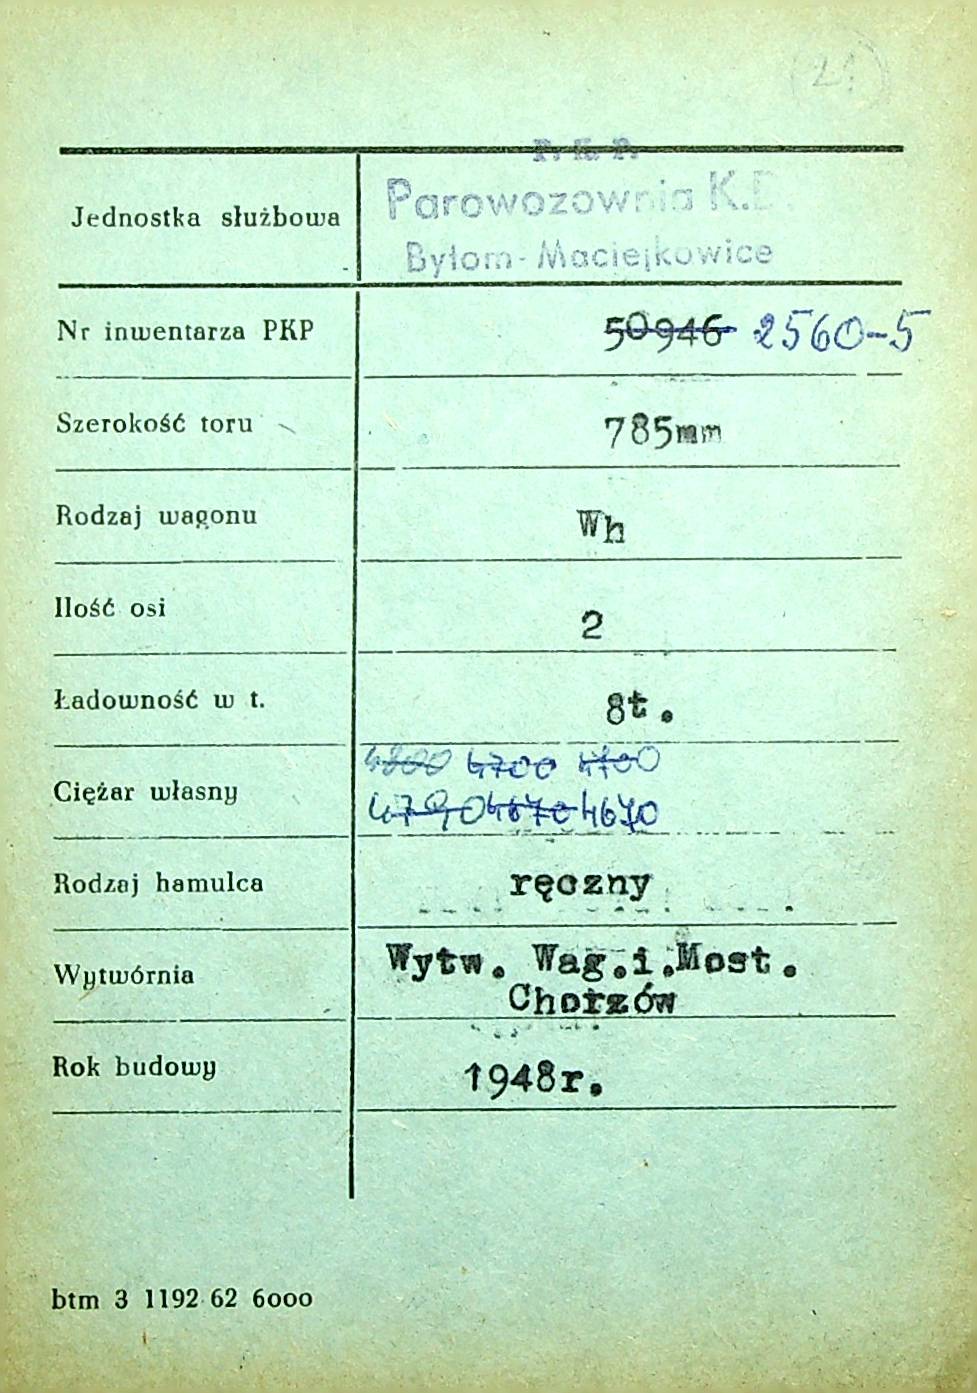 (21)
P. K. P.
Jednostka służbowa Parowozownia K.D.
Bytom-Maciejkowice
Nr inwentarza PKP 50946 2560-5
Szerokość toru 785mm
Rodzaj wagonu Wh
Ilość osi 2
Ładowność w t. 8t.
4800 4700 4700
Ciężar własny 4790 4670 4670
Rodzaj hamulca ręczny
Wytwórnia Wytw. Wag.i.Most.
Chorzów
Rok budowy 1948r.
btm 3 1192 62 6000